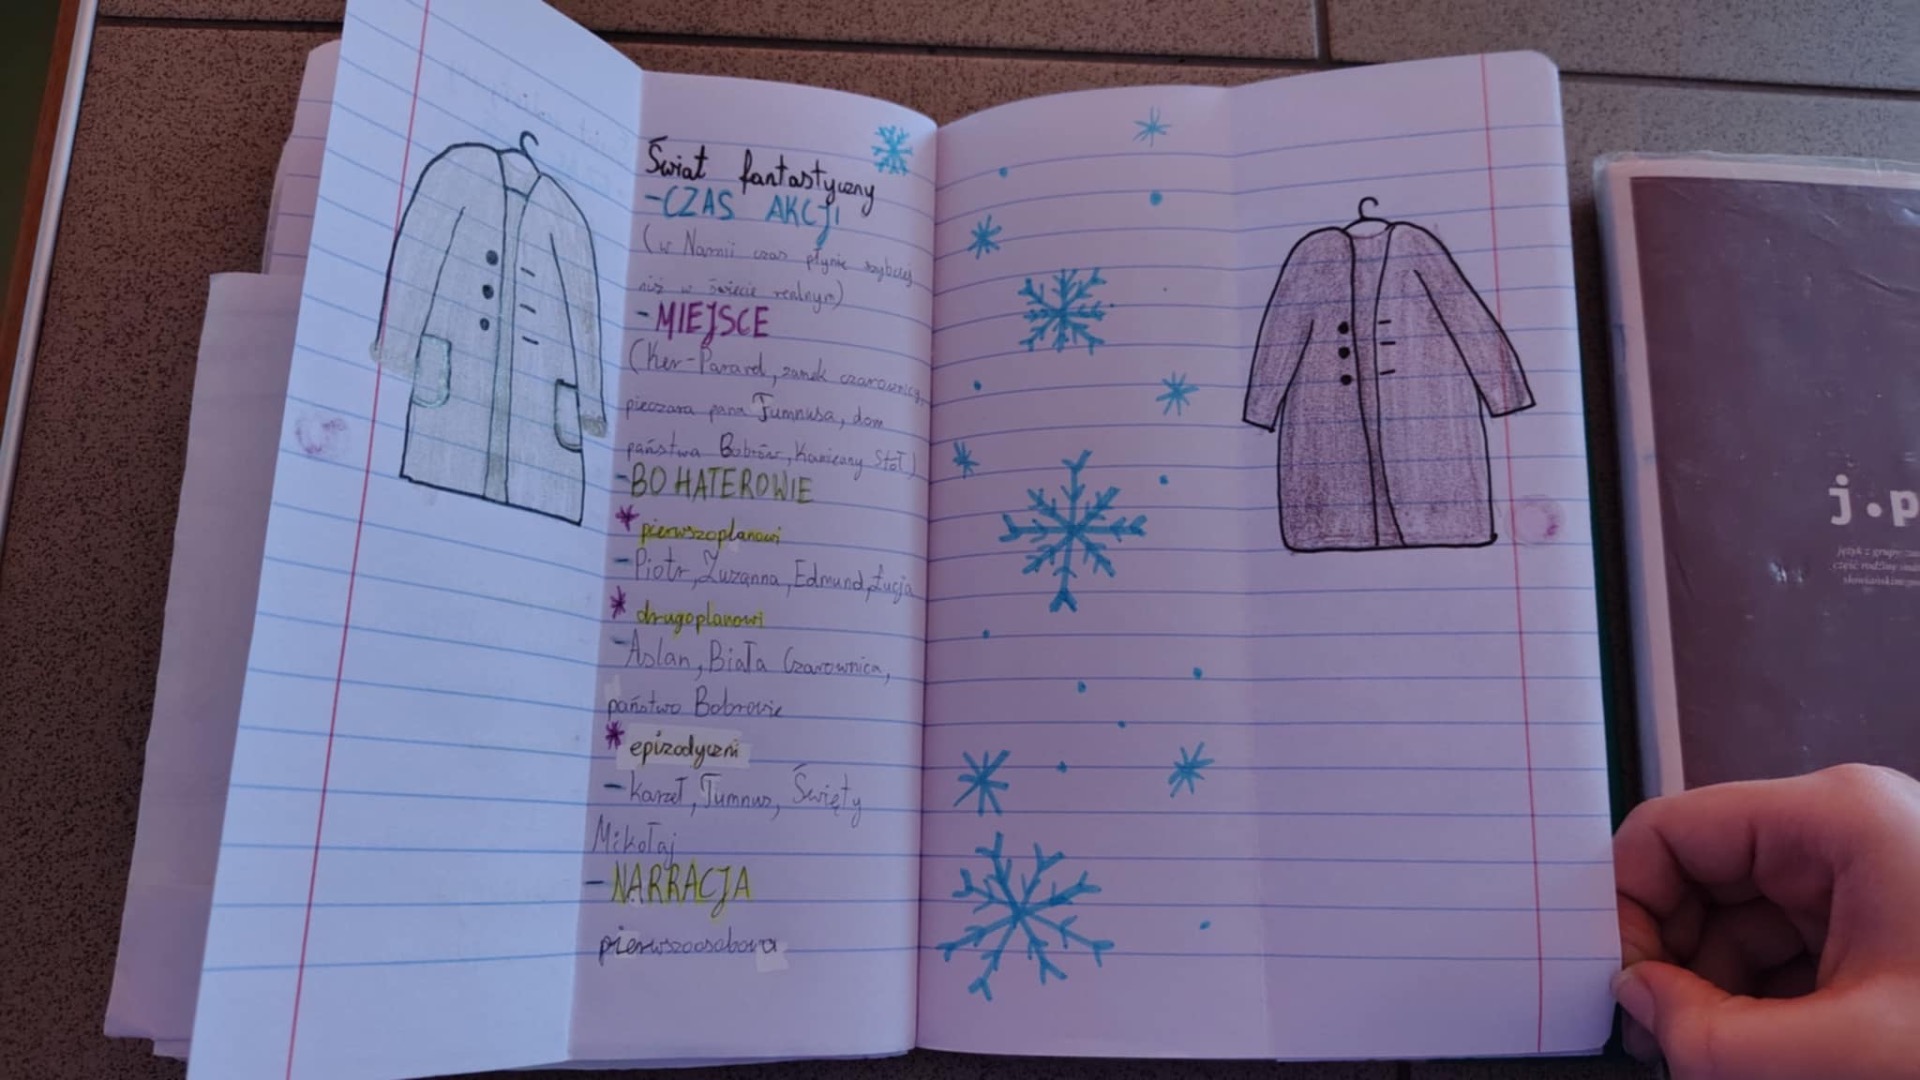 Świat fantastyczny
-CZAS AKCJI
(w Narnii czas płynie szybciej
niż w świecie realnym)
-MIEJSCE
(Ker-Paravel, zamek czarownicy,
pieczara pana Tumnusa, dom
państwa Bobrów, Kamienny Stół)
-BOHATEROWIE
* pierwszoplanowi
-Piotr, Zuzanna, Edmund, Łucja
* drugoplanowi
-Aslan, Biała Czarownica,
państwo Bobrowie
* epizodyczni
-karzeł, Tumnus, Święty
Mikołaj
-NARRACJA
pierwszoosobowa
j.p